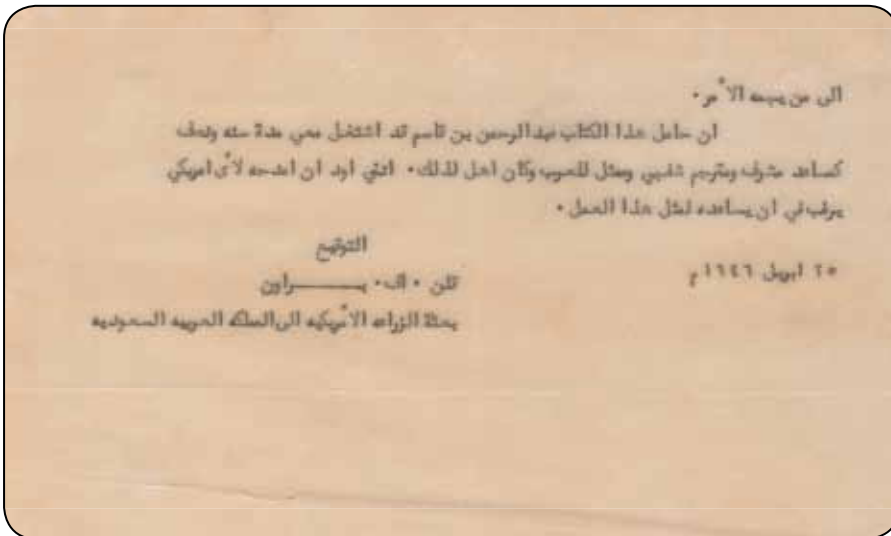 الى من يهمه الأمر٠
ان حامل هذا الكتاب عبدالرحمن بن قاسم قد اشتغل معي مدة سنه ونصف
كساعد مشرف ومترجم شفهي وممثل للعرب وكان اهل لذلك٠ انني اود ان امدحه لأى امريكي
يرغب في ان يساعده لمثل هذا العمل٠
٢٥ ابريل ١٩٤٦ م
التوقيع
قلن ٠ اف٠ بـــــراون
بعثة الزراعه الأمريكيه الى المملكه العربيه السعوديه